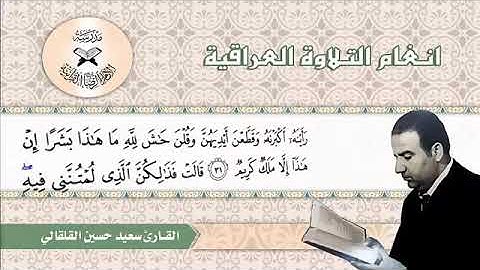 انغام التلاوة العراقية
مدرسة
رَأَيْنَهُۥٓ أَكْبَرْنَهُۥ وَقَطَّعْنَ أَيْدِيَهُنَّ وَقُلْنَ حَـٰشَ لِلَّهِ مَا هَـٰذَا بَشَرًا إِنْ
هَـٰذَآ إِلَّا مَلَكٌ كَرِيمٌ ٣١ قَالَتْ فَذَٰلِكُنَّ ٱلَّذِى لُمْتُنَّنِى فِيهِ ۖ
القارئ سعيد حسين القلقالي